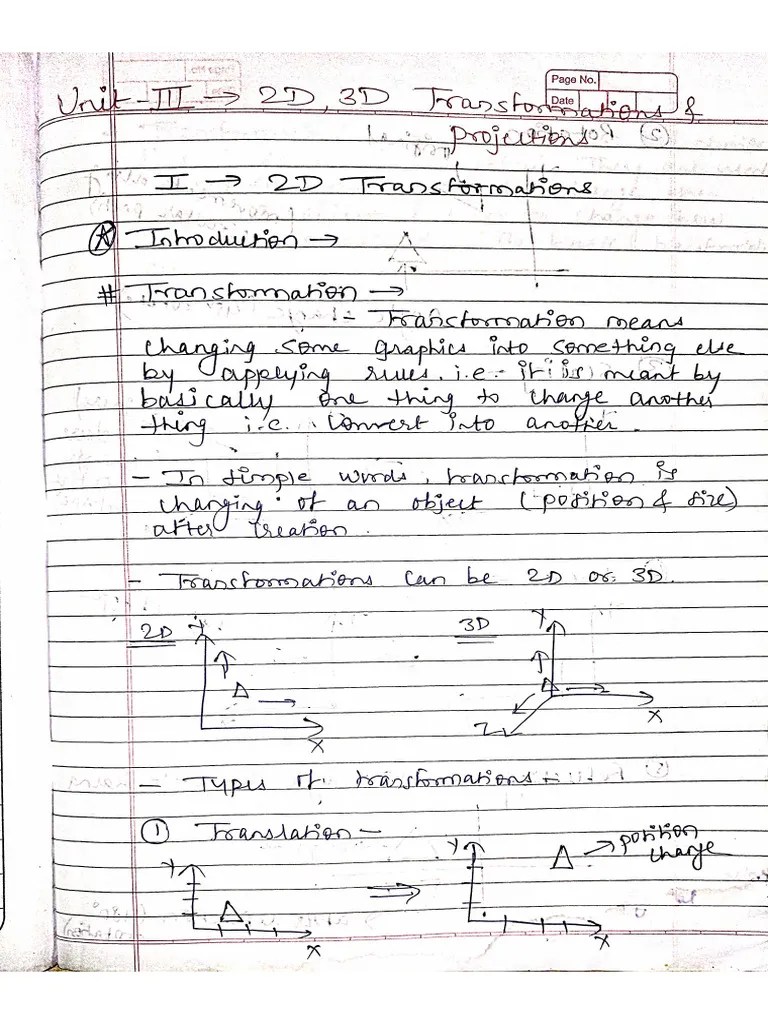 Page No.
Date
Unit-III → 2D, 3D Transformations &
Projections
I → 2D Transformations
Introduction →
# Transformation →
- Transformation means
changing some graphics into something else
by applying rules. i.e. it is meant by
basically one thing to change another
thing i.e. convert into another.
- In simple words, transformation is
changing of an object (position & size)
after creation.
- Transformations can be 2D or 3D.
2D Y
X
3D Y
X
Z
- Types of transformations -
① Translation -
Y
X
Y
X
→ position
change